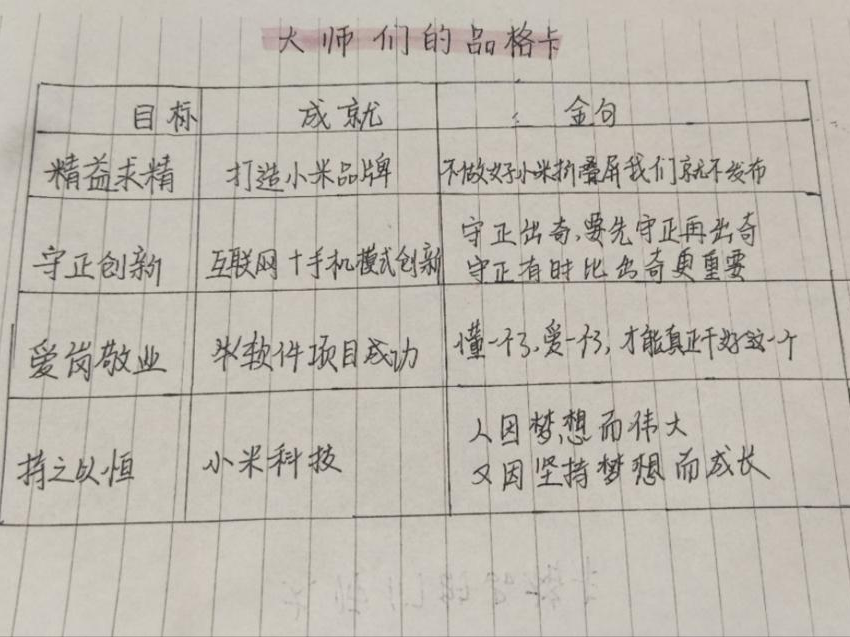 大师们的品格卡
目标 成就 金句
精益求精 打造小米品牌 不做好小米折叠屏我们就不发布
守正创新 互联网+手机模式创新 守正出奇,要先守正再出奇
守正有时比出奇更重要
爱岗敬业 软件项目成功 懂一行,爱一行,才能真正干好这一个
持之以恒 小米科技 人因梦想而伟大
又因坚持梦想而成长